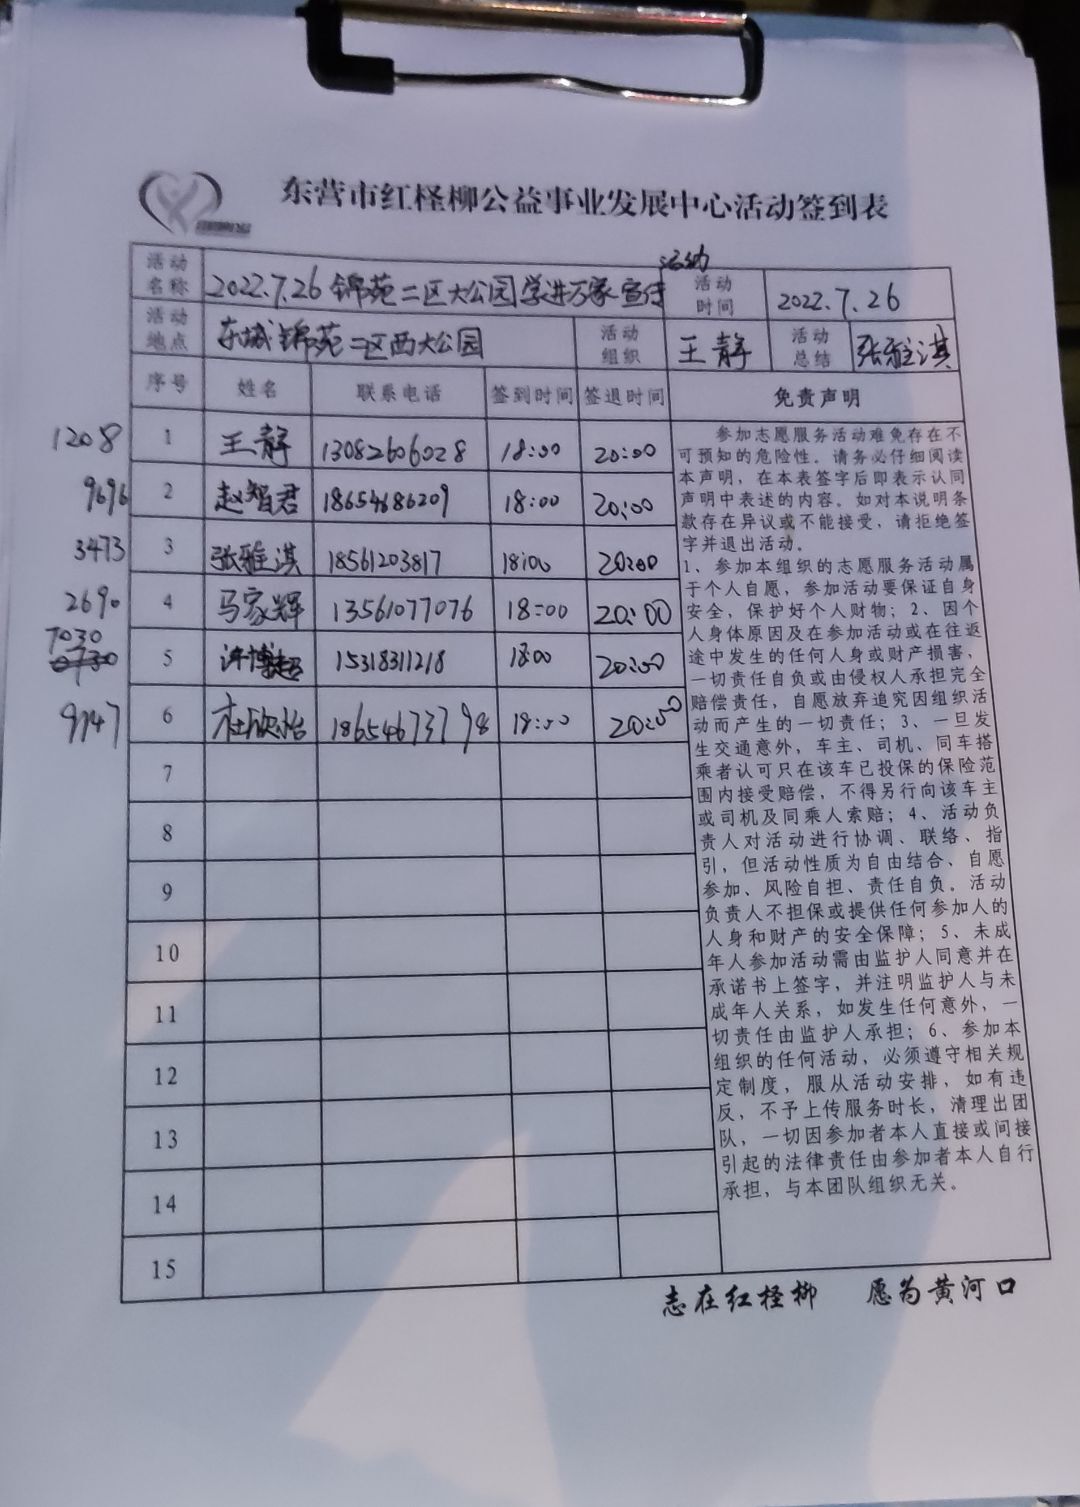 东营市红柽柳公益事业发展中心活动签到表
活动名称 2022.7.26 锦苑二区大公园学进万家宣传活动 活动时间 2022.7.26
活动地点 东城锦苑二区西大公园 活动组织 王静 活动总结 张雅淇
序号 姓名 联系电话 签到时间 签退时间 免责声明
1208 1 王静 13082606028 18:00 20:00
9696 2 赵智君 18654686209 18:00 20:00
3473 3 张雅淇 18561203817 18:00 20:00
2690 4 马家辉 13561077076 18:00 20:00
7030 5 许博超 15318311218 18:00 20:00
9747 6 杜欣怡 18654673798 18:00 20:00
7
8
9
10
11
12
13
14
15
参加志愿服务活动难免存在不
可预知的危险性。请务必仔细阅读
本声明，在本表签字后即表示认同
声明中表述的内容。如对本说明条
款存在异议或不能接受，请拒绝签
字并退出活动。
1、参加本组织的志愿服务活动属
于个人自愿，参加活动要保证自身
安全，保护好个人财物；2、因个
人身体原因及在参加活动或在往返
途中发生的任何人身或财产损害，
一切责任自负或由侵权人承担完全
赔偿责任，自愿放弃追究因组织活
动而产生的一切责任；3、一旦发
生交通意外，车主、司机、同车搭
乘者认可只在该车已投保的保险范
围内接受赔偿，不得另行向该车主
或司机及同乘人索赔；4、活动负
责人对活动进行协调、联络、指
引，但活动性质为自由结合、自愿
参加、风险自担、责任自负。活动
负责人不担保或提供任何参加人的
人身和财产的安全保障；5、未成
年人参加活动需由监护人同意并在
承诺书上签字，并注明监护人与未
成年人关系，如发生任何意外，一
切责任由监护人承担；6、参加本
组织的任何活动，必须遵守相关规
定制度，服从活动安排，如有违
反，不予上传服务时长，清理出团
队，一切因参加者本人直接或间接
引起的法律责任由参加者本人自行
承担，与本团队组织无关。
志在红柽柳 愿为黄河口